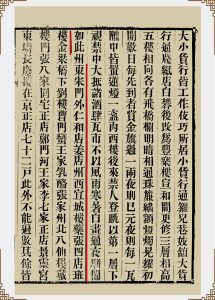 大小貨行皆工作伎巧所居小貨行通雞兒巷妓館大貨
行通牋紙店白礬樓後改為豐樂樓宣和間更修三層相高
五樓相向各有飛橋欄檻明暗相通珠簾繡額燈燭晃耀初
開數日每先到者賞金旗過一兩夜則已元夜則每一瓦
隴中皆置蓮燈一盞內西樓後來禁人登眺以第一層下
視禁中大抵諸酒肆瓦市不以風雨寒暑白晝通夜駢闐
如此州東宋門外仁和店姜店州西宜城樓藥張四店班
樓金梁橋下劉樓曹門蠻王家乳酪張家州北八仙樓戴
樓門張八家園宅正店鄭門河王家李七家正店景靈宮
東牆長慶樓在京正店七十二戶此外不能遍數其餘皆